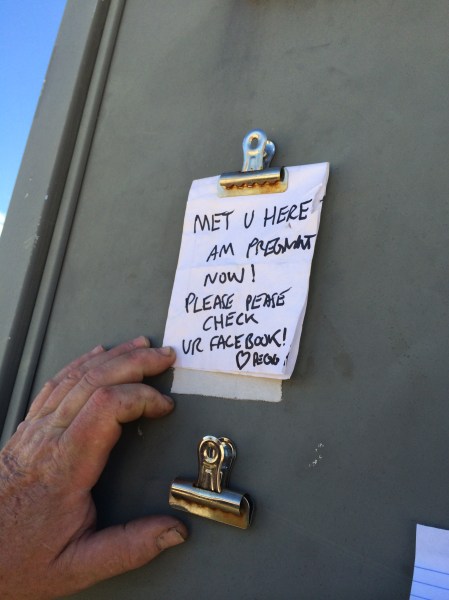 MET U HERE
AM PREGNANT
NOW!
PLEASE PEASE
CHECK
UR FACEBOOK!
♡